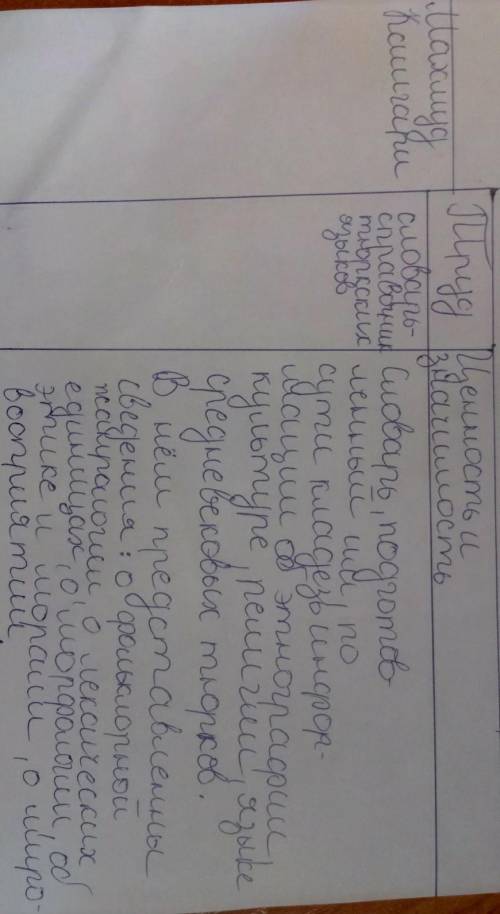 Махмуд
Кашгари
Труд
словарь-
справочник
тюркских
языков
Ценность и
значимость
Словарь, подготов-
ленный им, по
сути кладезь инфор-
мации об этнографии,
культуре, религии, языке
средневековых тюрков.
В нём представленны
сведения: о фольклорной
жанрологии, о лексических
единицах, о морфологии, об
этике и морали, о миро-
восприятии